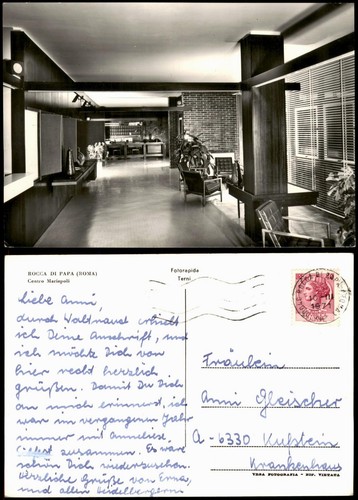 ROCCA DI PAPA (ROMA)
Centro Mariapoli
Fotorapida
Terni
Liebe Anni,
durch Waltraud erhielt
ich Deine Anschrift, und
ich möchte Dich von
hier recht herzlich
grüßen. Damit Du Dich
an mich erinnerst, ich
war im vergangenen Jahr
immer mit Anneliese
zusammen. Es wäre
schön Dich wiederzusehen.
Herzliche Grüße von Erna,
und allen Heidelbergern
1971
Fräulein
Anni Gleischer
A-6330 Kufstein
Krankenhaus
VERA FOTOGRAFIA